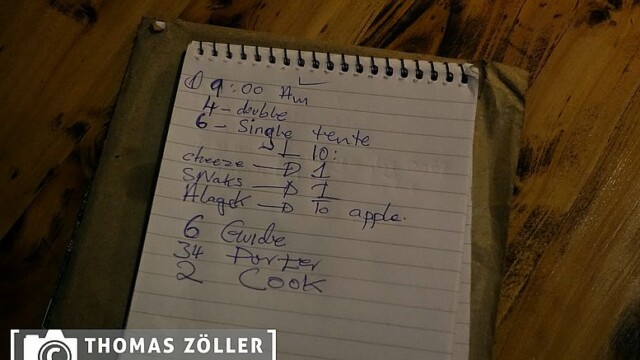 ① 9:00 Am
4 - double
6 - Single tente
10:
cheeze — D 1
SNaks — D 1
Alagek — D To apple.
6 Guide
34 Porter
2 Cook
© THOMAS ZÖLLER